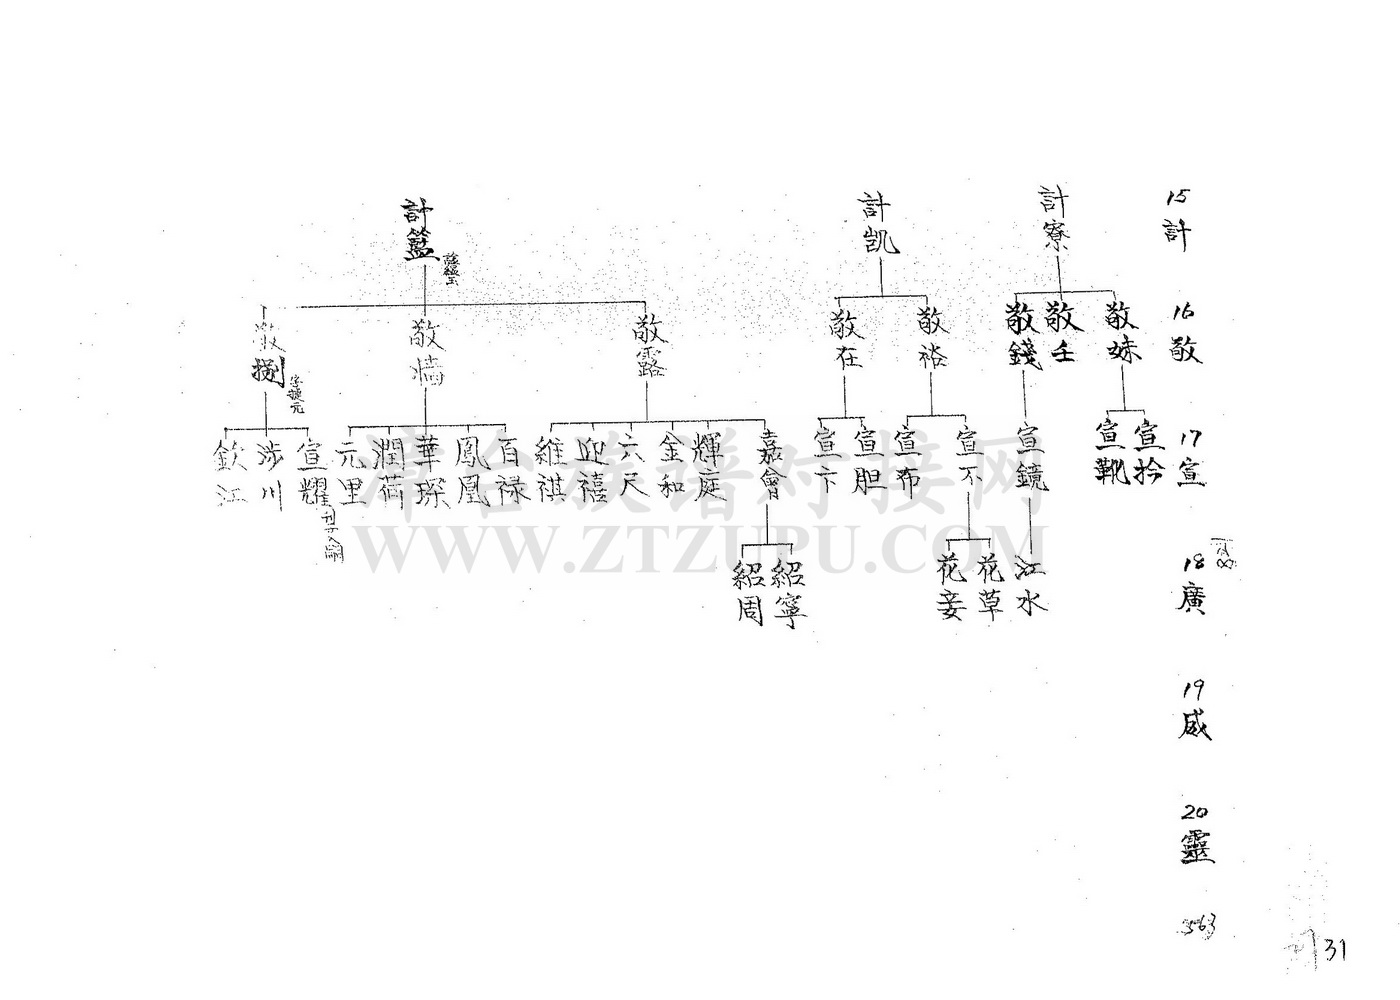 15 計
計寮
計凱
計籃
16 敬
敬妹
敬壬
敬錢
敬裕
敬在
敬露
敬墻
敬捌
字捷元
17 宣
宣拾
宣靴
宣鏡
宣不
宣布
宣胆
宣卞
嘉會
輝庭
金和
六尺
迎禧
維祺
百禄
鳳凰
華琛
潤荷
元里
宣耀
涉川
欽江
18 廣
江水
花草
花妾
紹寧
紹周
19 威
20 靈
563
31
漳台族谱对接网
WWW.ZTZUPU.COM